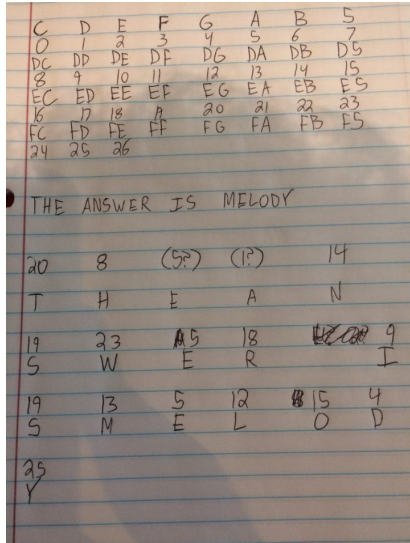 C D E F G A B 5
0 1 2 3 4 5 6 7
DC DD DE DF DG DA DB D5
8 9 10 11 12 13 14 15
EC ED EE EF EG EA EB E5
16 17 18 19 20 21 22 23
FC FD FE FF FG FA FB F5
24 25 26
THE ANSWER IS MELODY
20 8 (5?) (1?) 14
T H E A N
19 23 5 18 9
S W E R I
19 13 5 12 15 4
S M E L O D
25
Y